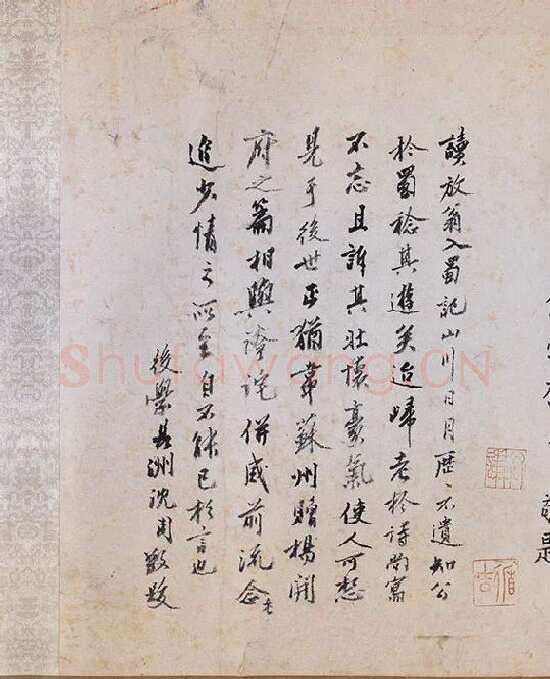 謹題
讀放翁入蜀記山川日月歷〻不遺知公
於蜀稔其遊矣迨歸老於詩尚寓
不忘且誇其壯懷豪氣使人可想
見于後世正猶韋蘇州贈楊開
府之篇相與誇詫併感前流念老
追少情之所至自不能已於言也
後學長洲沈周敬跋
Shufawang.CN